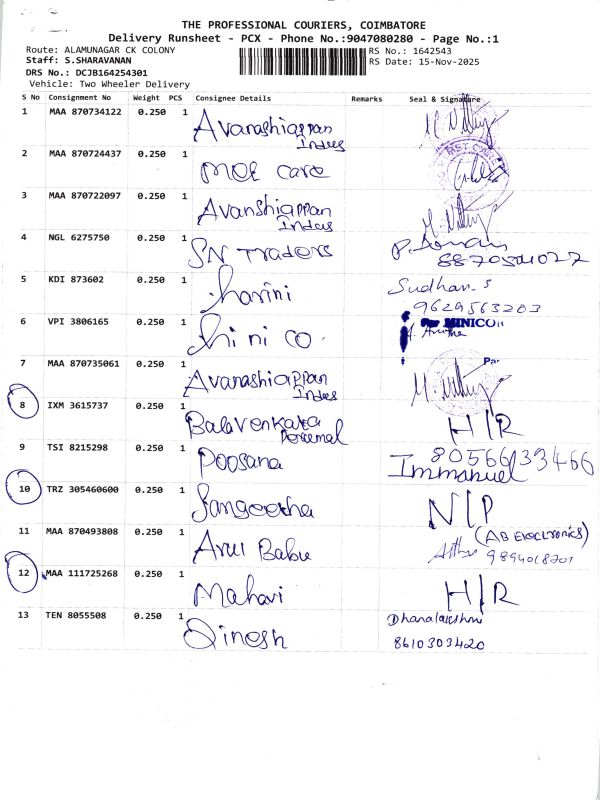 THE PROFESSIONAL COURIERS, COIMBATORE
Delivery Runsheet - PCX - Phone No.:9047080280 - Page No.:1
Route: ALAMUNAGAR CK COLONY RS No.: 1642543
Staff: S.SHARAVANAN RS Date: 15-Nov-2025
DRS No.: DCJB164254301
Vehicle: Two Wheeler Delivery
S No Consignment No Weight PCS Consignee Details Remarks Seal & Signature
1 MAA 870734122 0.250 1 Avanashiappan
Indus
2 MAA 870724437 0.250 1 MOE care
3 MAA 870722097 0.250 1 Avanshiappan
Indus
4 NGL 6275750 0.250 1 SN Traders
5 KDI 873602 0.250 1 harini Sudhan. S
9629563203
6 VPI 3806165 0.250 1 MINICO
7 MAA 870735061 0.250 1 Avanashiappan
Indus
8 IXM 3615737 0.250 1 Balavenkata H/R
Perumal
9 TSI 8215298 0.250 1 Poosana 80566133466
Immanuel
10 TRZ 305460600 0.250 1 Sangeetha N/P
11 MAA 870493808 0.250 1 Arul Babu
12 MAA 111725268 0.250 1 H/R
13 TEN 8055508 0.250 1 Dinesh Dhanalakshmi
8610303420